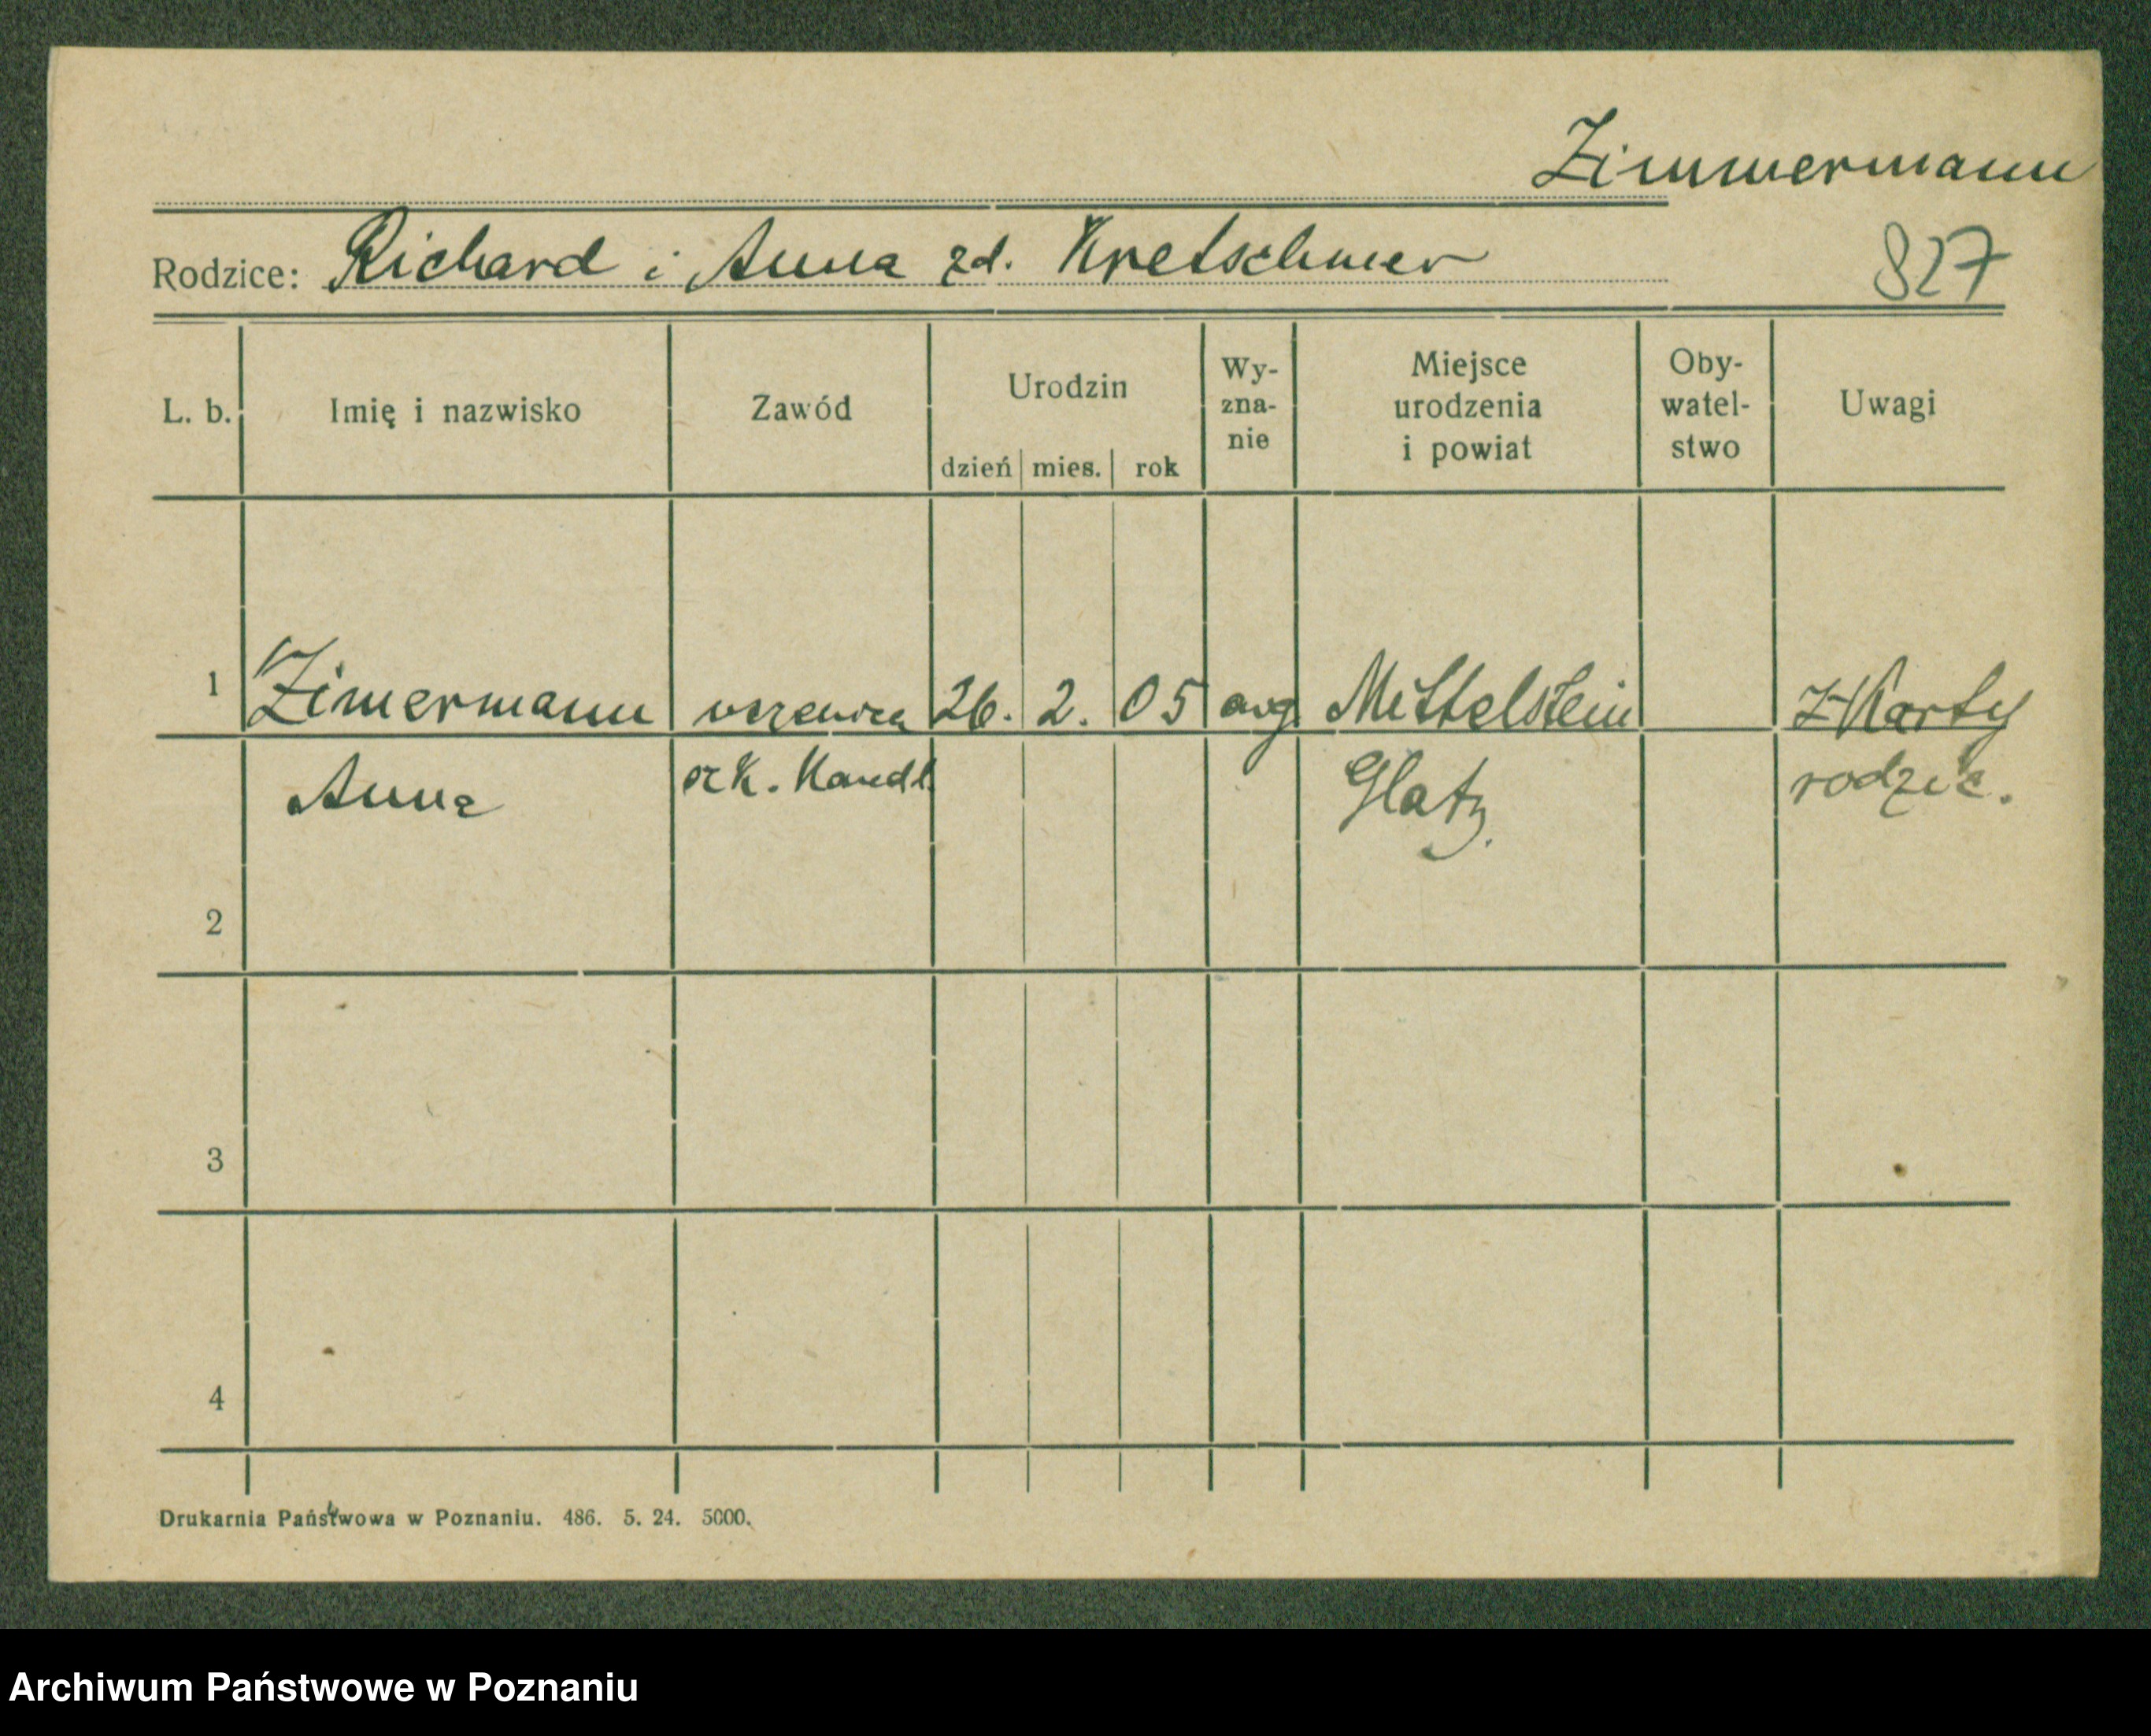 Zimmermann
Rodzice: Richard i Anna zd. Kretschmer
827
L. b. Imię i nazwisko Zawód Urodzin dzień mies. rok Wy-zna-nie Miejsce urodzenia i powiat Oby-watel-stwo Uwagi
1 Zimermann uczenica 26. 2. 05 Mittelstein Z Karty
Anna szk. Handl. Glatz. rodzic.
2
3
4
Drukarnia Państwowa w Poznaniu. 486. 5. 24. 5000.
Archiwum Państwowe w Poznaniu